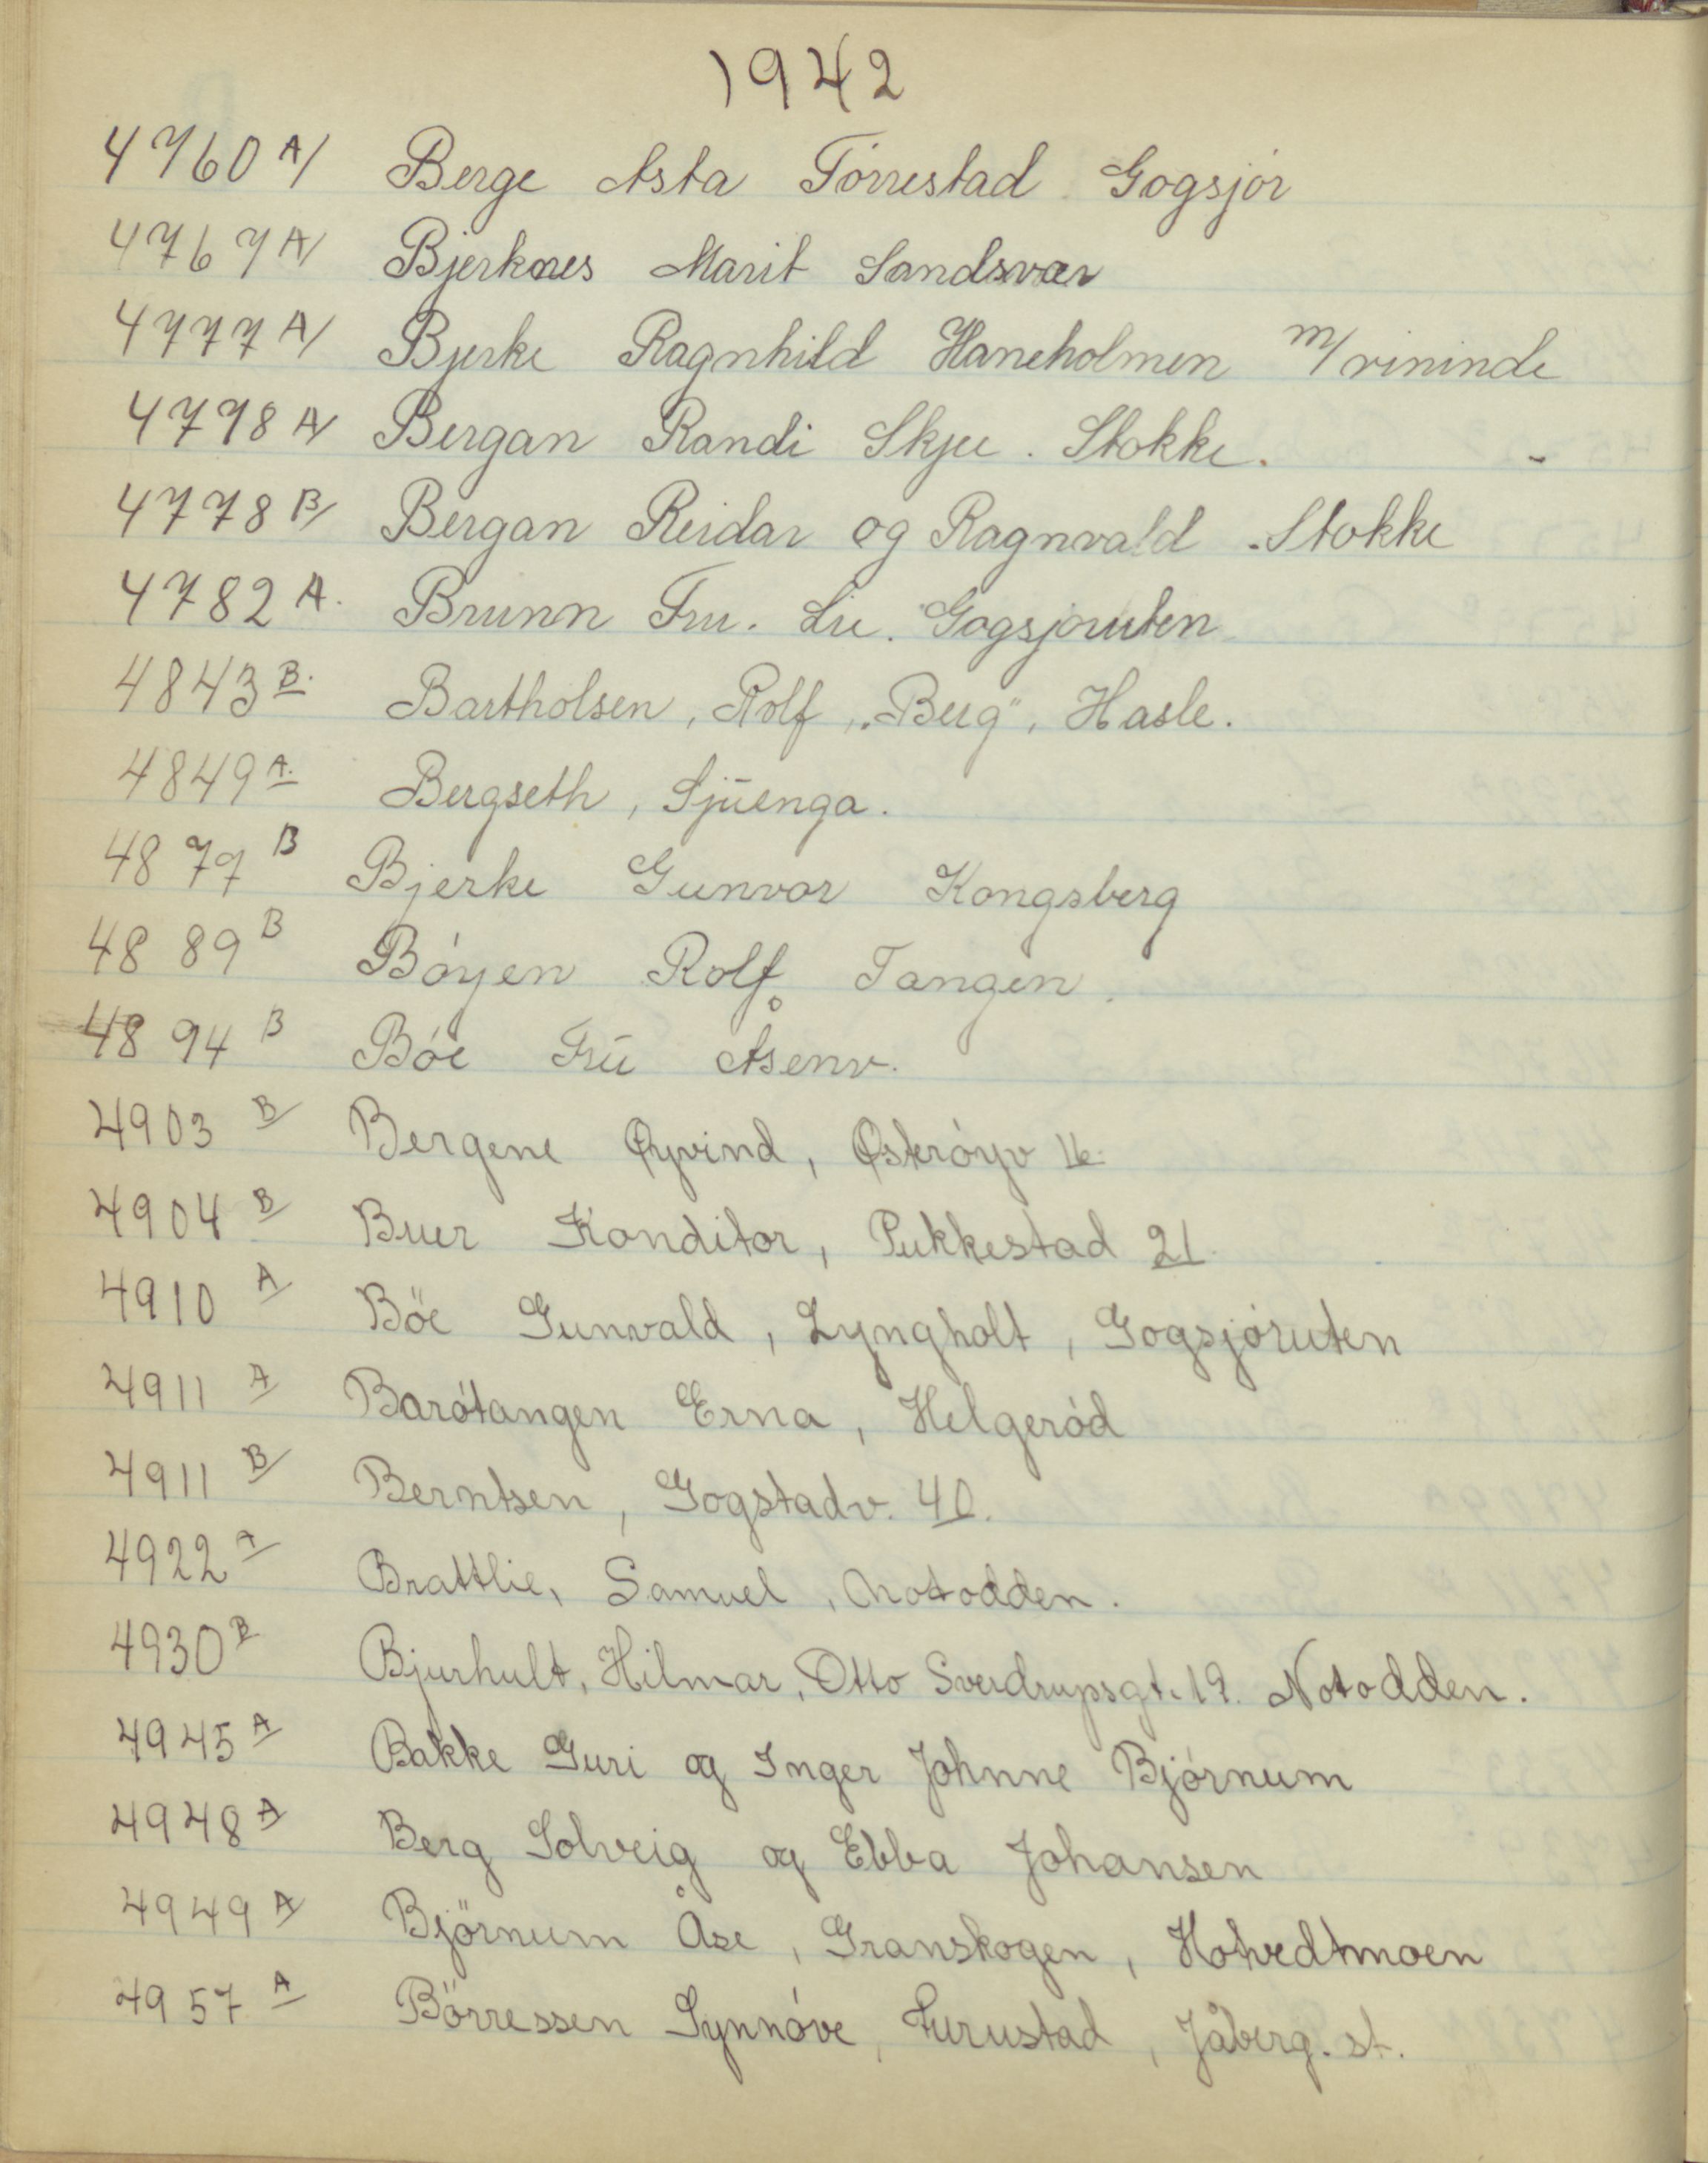 1942
4760 A/ Berge Asta Tórrestad Gogsjór
4767 A/ Bjerknes Marit Sandsvær
4777 A/ Bjerke Ragnhild Haneholmen m/vininde
4778 A/ Bergan Randi Skjee. Stokke.
4778 B/ Bergan Reidar og Ragnvald. Stokke
4782 A. Brunn Fru. Lie. Gogsjóruten
4843 B. Bartholsen, Rolf „Berg", Hasle.
4849 A. Bergseth, Sjūenga.
4879 B Bjerke Gunvor Kongsberg
4889 B Bóyen Rolf Tangen.
4894 B Bóe Frū Åsenv.
4903 B/ Bergene Øyvind, Østeróyv 16.
4904 B/ Buer Konditor, Pukkestad 21.
4910 A/ Böe Gunvald, Lyngholt, Gogsjóruten
4911 A/ Barótangen Erna, Helgeród
4911 B/ Berntsen, Gogstadv. 40.
4922 A Brattlie, Samuel, Notodden.
4930 B Bjurhult, Hilmar, Otto Sverdrupsgt. 19. Notodden.
4945 A Bakke Guri og Inger Johnne Bjórnum
4948 A/ Berg Solveig og Ebba Johansen
4949 A/ Björnum Åse, Granskogen, Hotvedtmoen
4957 A Börressen Synnóve, Furustad, Jåberg. st.